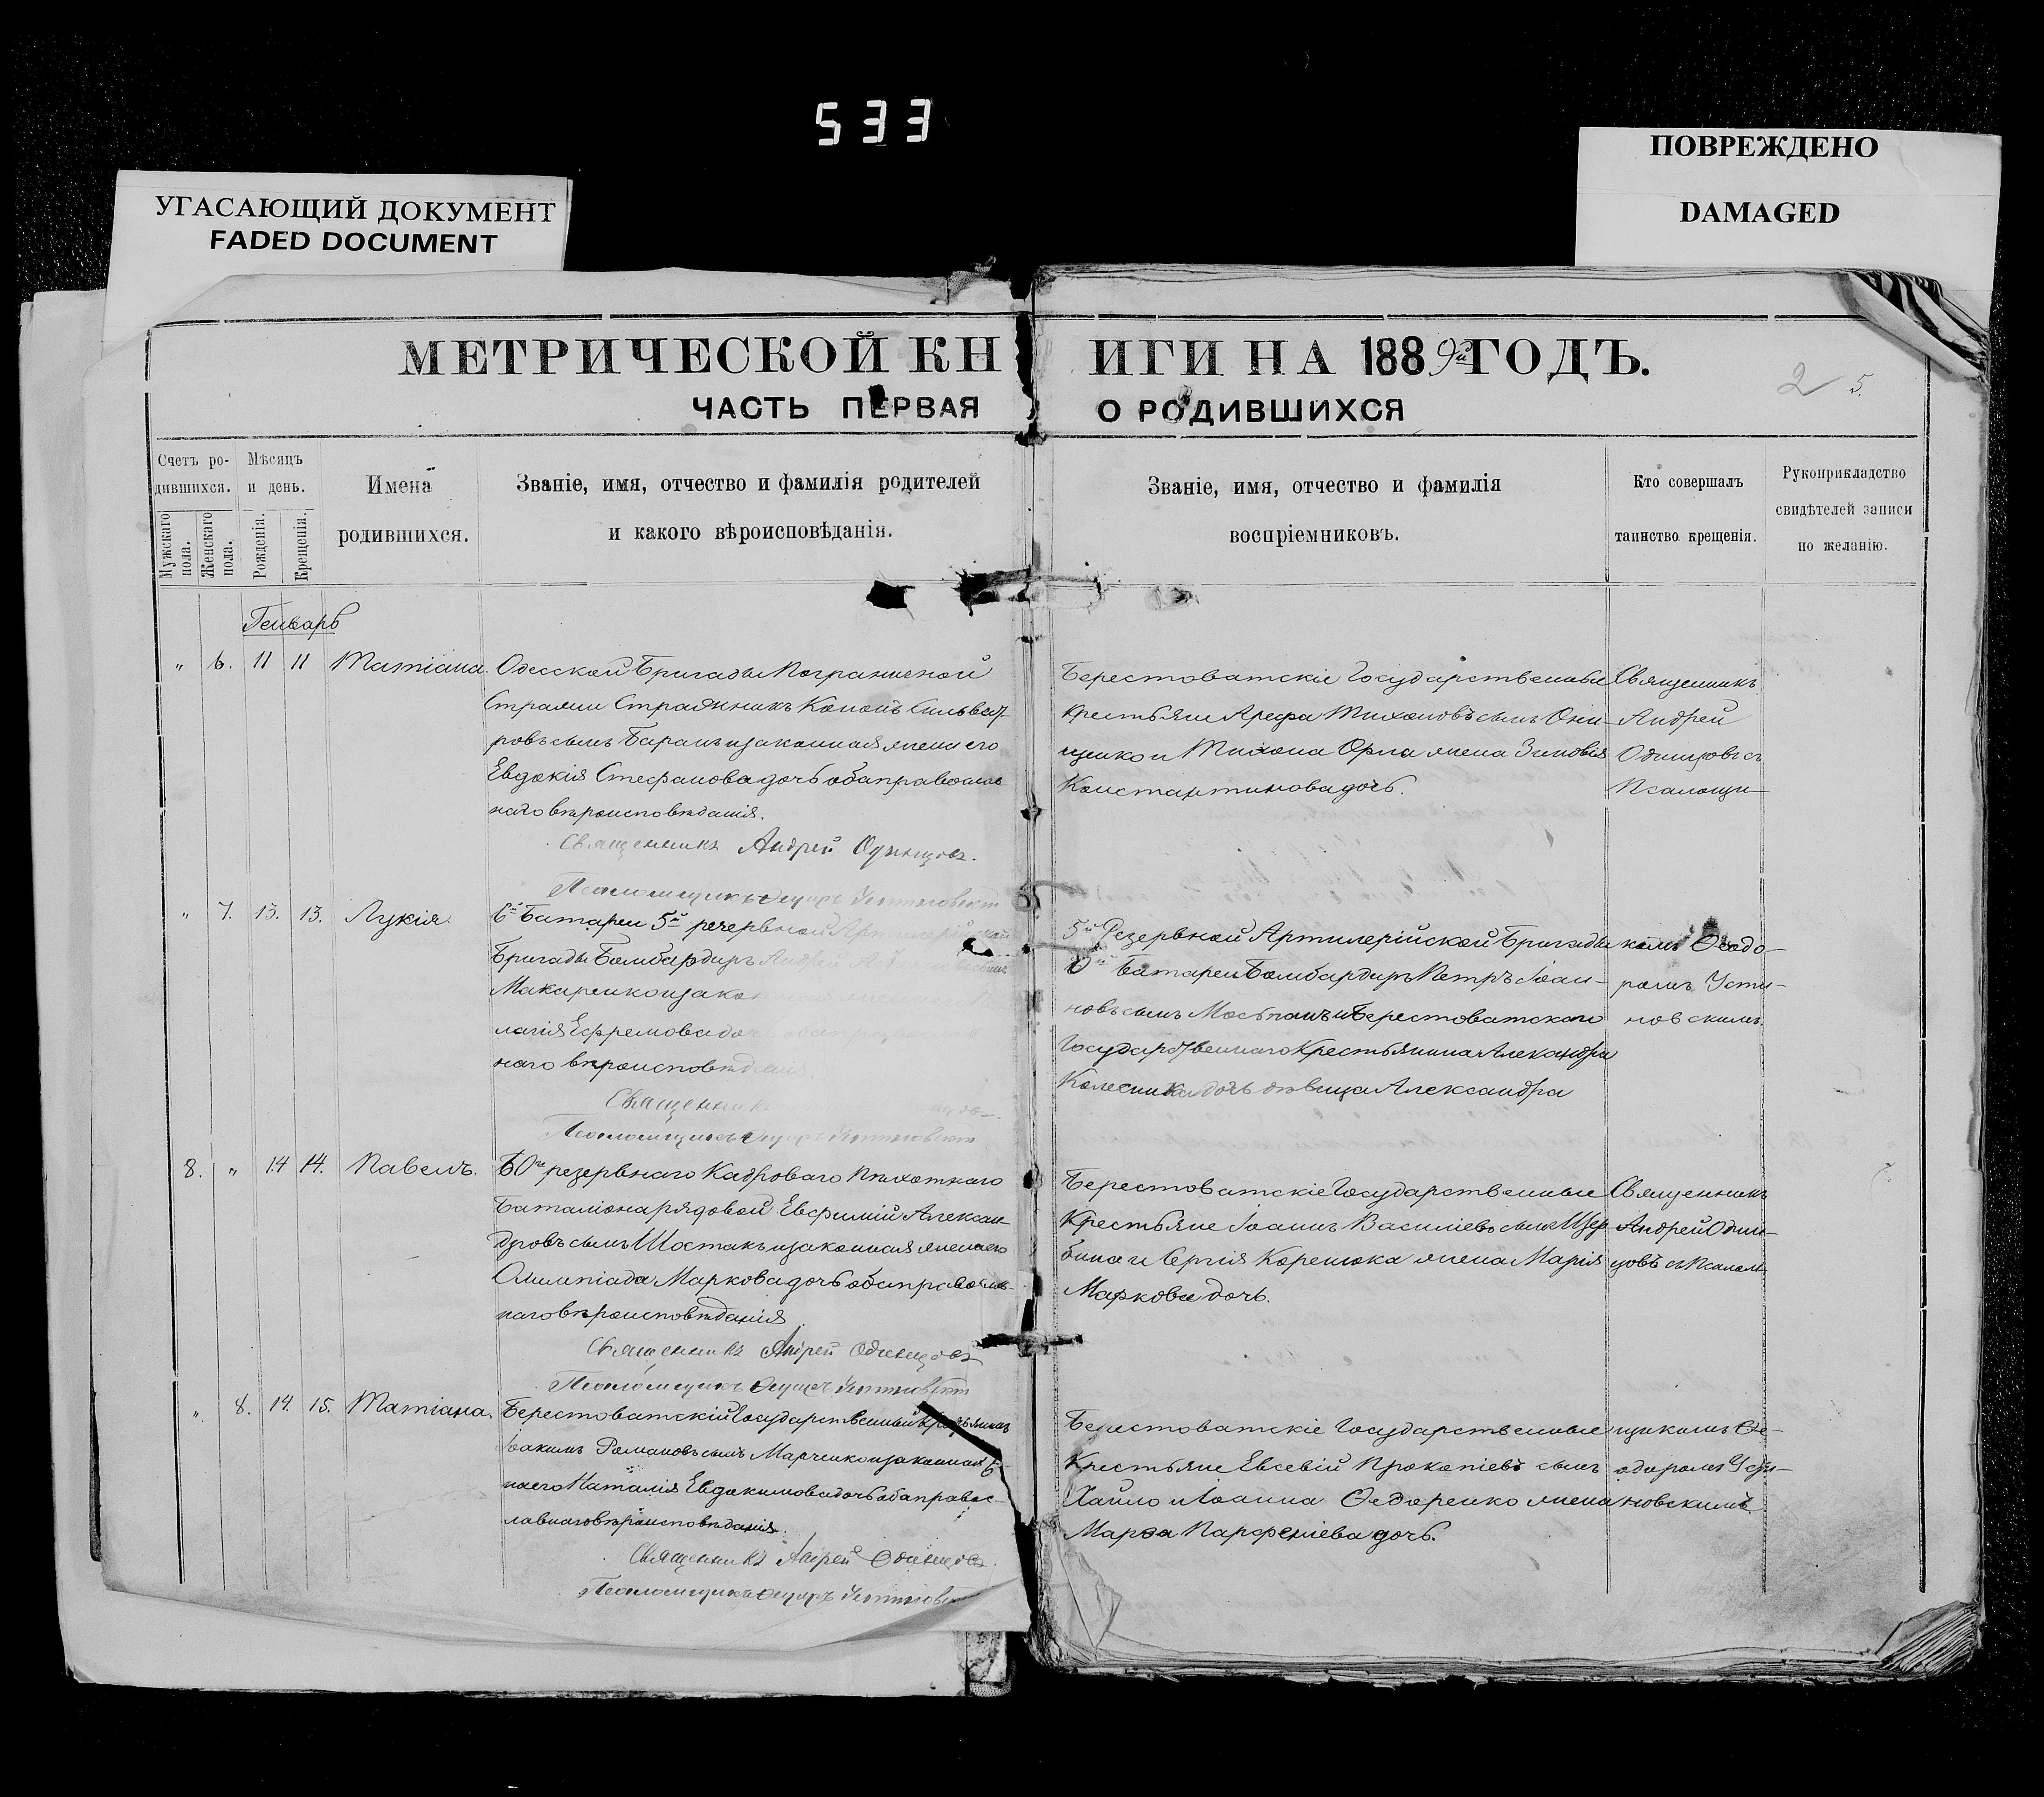 533
УГАСАЮЩИЙ ДОКУМЕНТ
FADED DOCUMENT
ПОВРЕЖДЕНО
DAMAGED
МЕТРИЧЕСКОЙ КНИГИ НА 1889й ГОДЪ.
2 5.
ЧАСТЬ ПЕРВАЯ О РОДИВШИХСЯ
Счетъ ро-
дившихся.
Мужскаго пола.
Женскаго пола.
Мѣсяцъ
и день.
Рожденія.
Крещенія.
Имена
родившихся.
Званіе, имя, отчество и фамилія родителей
и какого вѣроисповѣданія.
Званіе, имя, отчество и фамилія
воспріемниковъ.
Кто совершалъ
таинство крещенія.
Рукоприкладство
свидѣтелей записи
по желанію.
Генварь
" 6. 11 11 Татіана.
Одесской Бригады Пограничной
Стражи Стражникъ Кононъ
ровъ сынъ Баранъ и законная жена его
Евдокія Стефанова дочь оба православ
наго вѣроисповѣданія.
Священникъ Андрей Одинцовъ.
Псаломщикъ Ѳеодоръ Устиновскій
Берестоватскіе Государственные
Крестьяне Арефа Тихоновъ сынъ Они-
щенко и Тихона Орла жена Зиновія
Константинова дочь.
Священникъ
Андрей
Одинцовъ съ
Псаломщи-
" 7. 13. 13. Лукія.
6й Батареи 5й резервной Артилерійской
Бригады Бомбардиръ Андрей
Макаренко и законная жена
лагія Ефремова дочь
наго вѣроисповѣданія.
Священникъ
Псаломщикъ Ѳеодоръ Устиновскій
5й Резервной Артилерійской Бригады
6й Батареи Бомбардиръ Петръ Іоан-
новъ сынъ и Берестоватскаго
Государственнаго Крестьянина Александра
Колесника дочь дѣвица Александра
комъ Ѳеодо-
ромъ Усти-
новскимъ.
8. " 14 14. Павелъ.
60го резервнаго Кадроваго Пѣхотнаго
Баталіона рядовой Евфимій Алексан-
дровъ сынъ Шостакъ и законная жена его
Олимпіада Маркова дочь оба православ-
наго вѣроисповѣданія
Священникъ Андрей Одинцовъ
Псаломщикъ Ѳеодоръ Устиновскій
Берестоватскіе Государственные
Крестьяне Іоаннъ Василіевъ сынъ Щер-
бина и Сергія Коренюка жена Марія
Маркова дочь.
Священникъ
Андрей Один-
цовъ съ Псалом-
". 8. 14. 15. Татіана.
Берестоватскій Государственный Крестьянинъ
Іоакимъ Романовъ сынъ Марченко и законная
на его Наталія Евдокимова дочь оба правос-
лавнаго вѣроисповѣданія.
Священникъ Андрей Одинцовъ.
Псаломщикъ Ѳеодоръ Устиновскій
Берестоватскіе Государственные
Крестьяне Евсевій Прокопіевъ сынъ
Хайло и Іоанна Ѳедоренко жена
Марѳа Парфеніева дочь.
щикомъ Ѳе-
одоромъ Усти-
новскимъ.